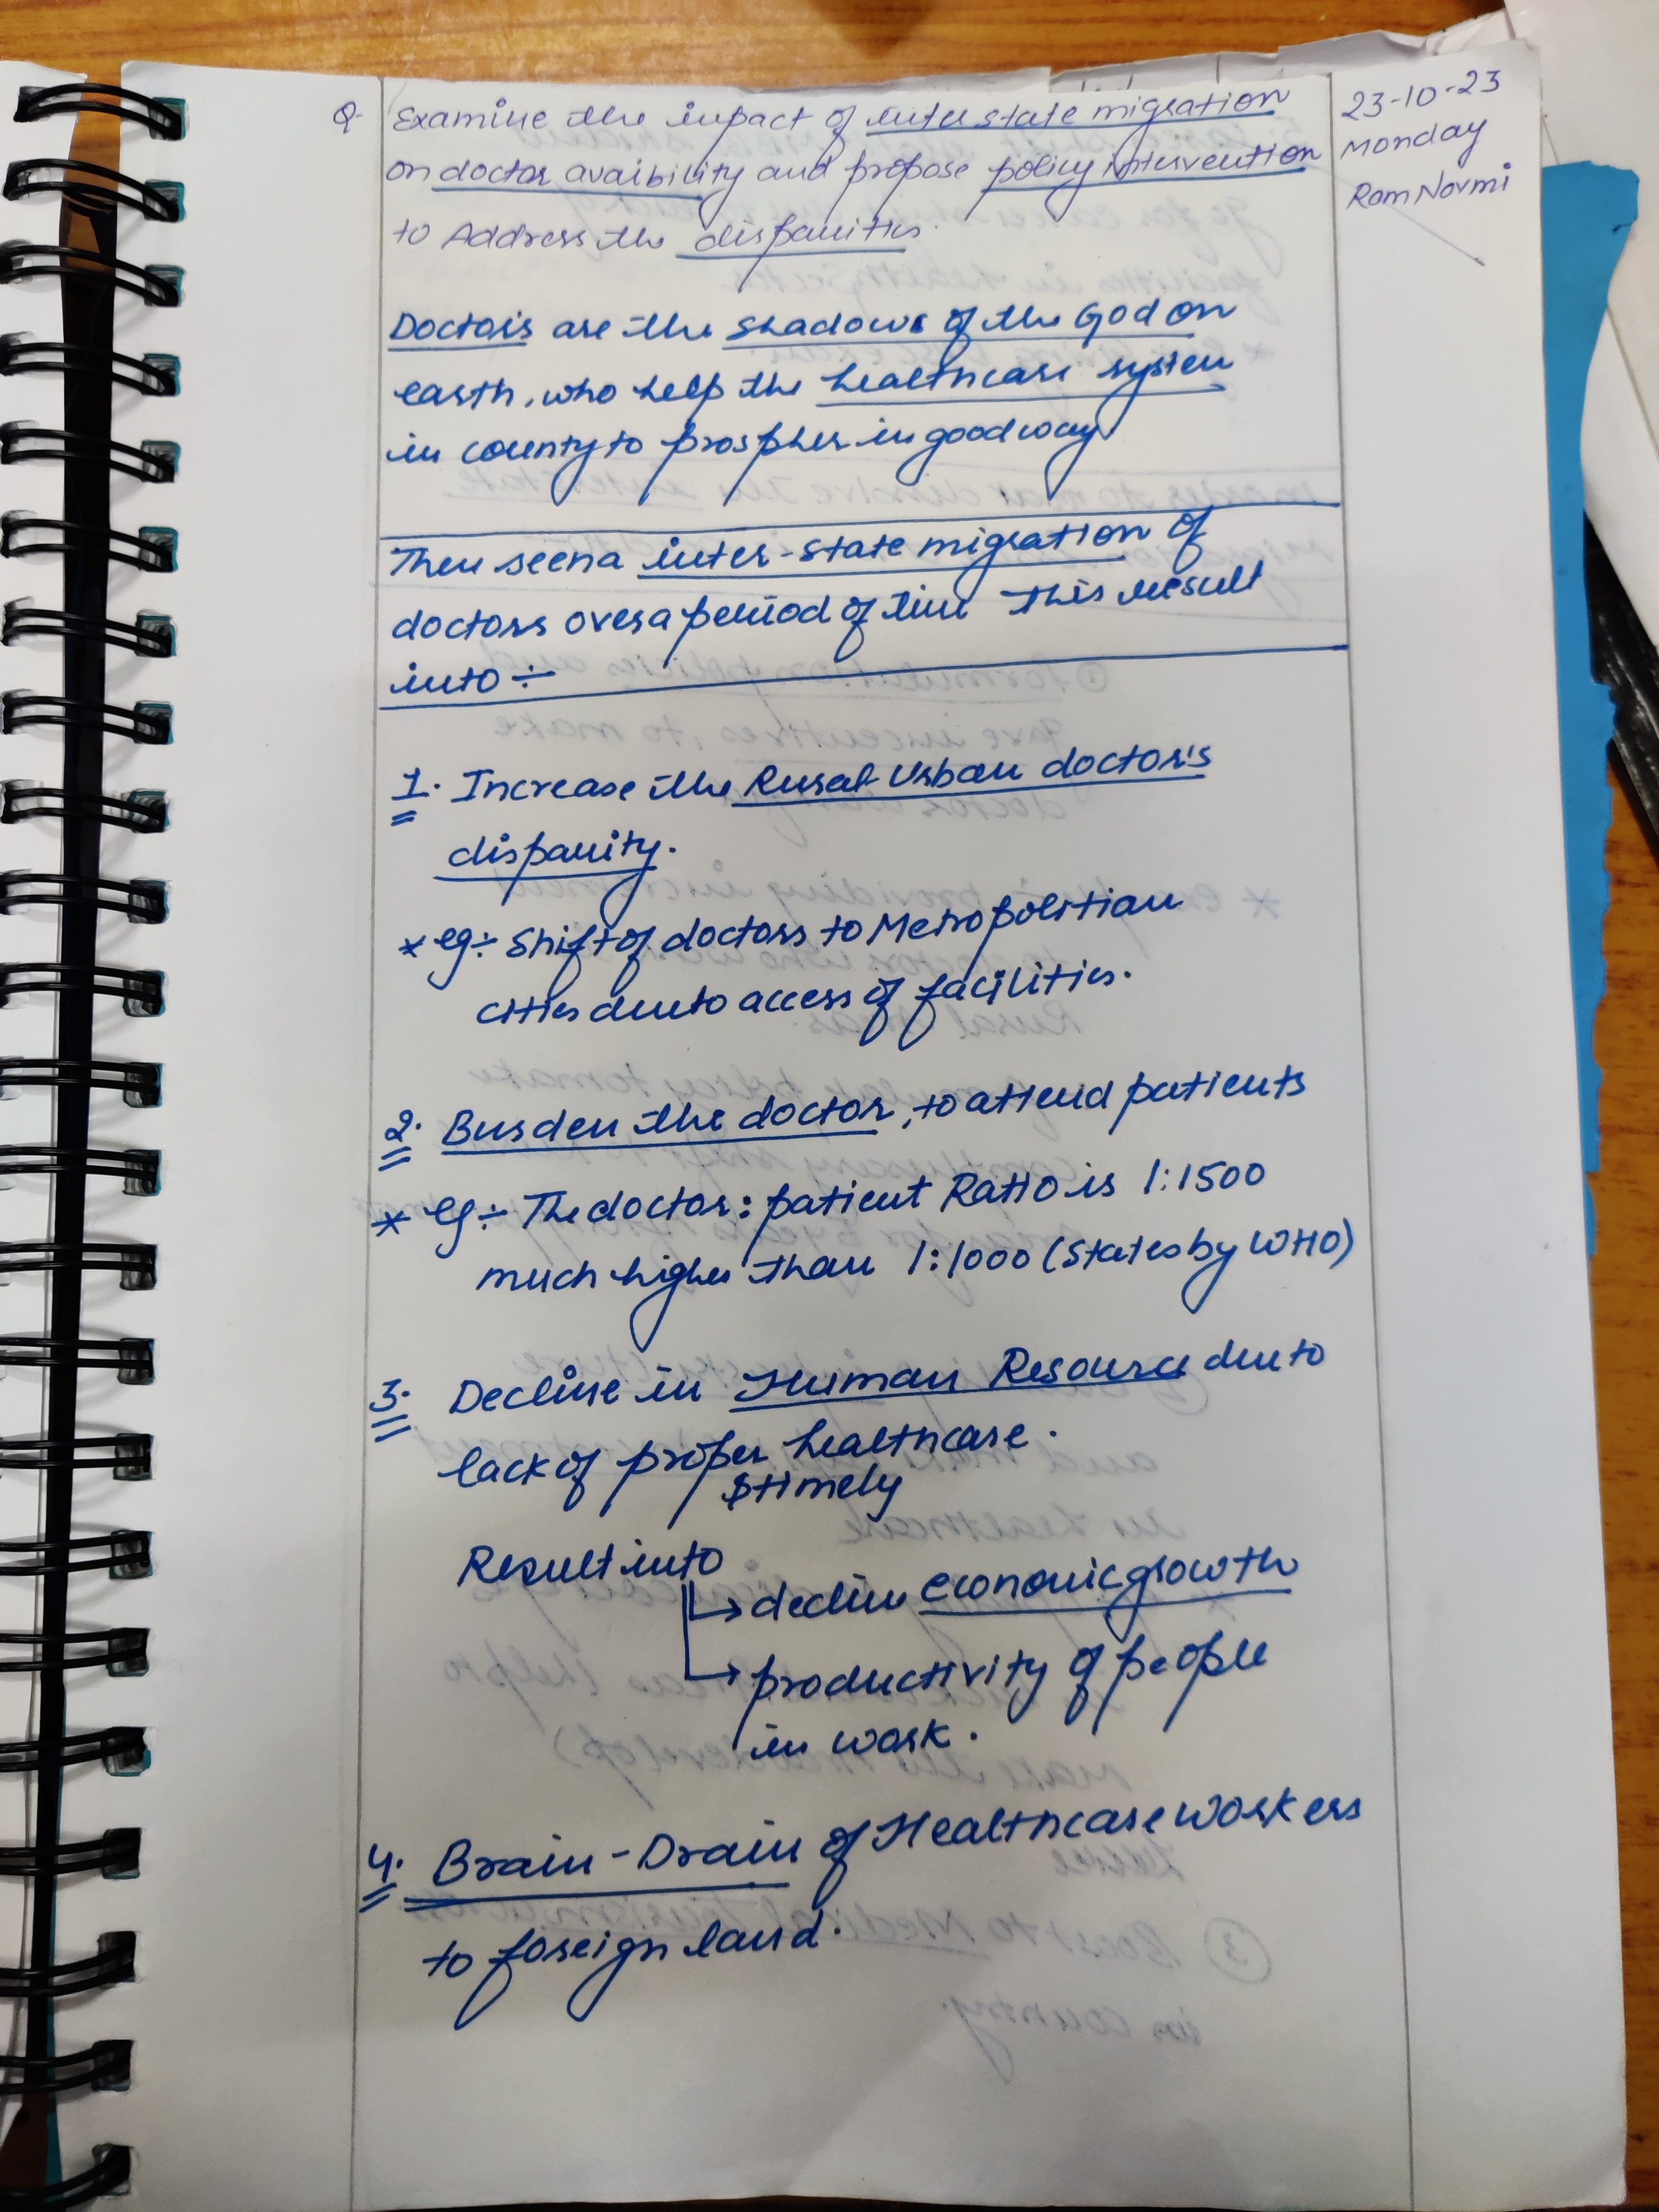 23-10-23
Monday
Ram Navmi
Q. Examine the impact of inter state migration
on doctor avaibility and propose policy intervention
to Address the disparities.
Doctors are the shadows of the God on
earth, who help the healthcare system
in county to prospher in good way
Then seen a inter-state migration of
doctors over a period of time This result
into ÷
1. Increase the Rural-Urban doctor's
disparity.
* eg ÷ Shift of doctors to Metropolitian
cities due to access of facilities.
2. Burden the doctor, to attend patients
* eg ÷ The doctor : patient Ratio is 1:1500
much higher than 1:1000 (States by WHO)
3. Decline in Human Resource due to
lack of proper healthcare.
& timely
Result into
→ decline economic growth
→ productivity of people
in work.
4. Brain-Drain of Healthcare workers
to foreign land.